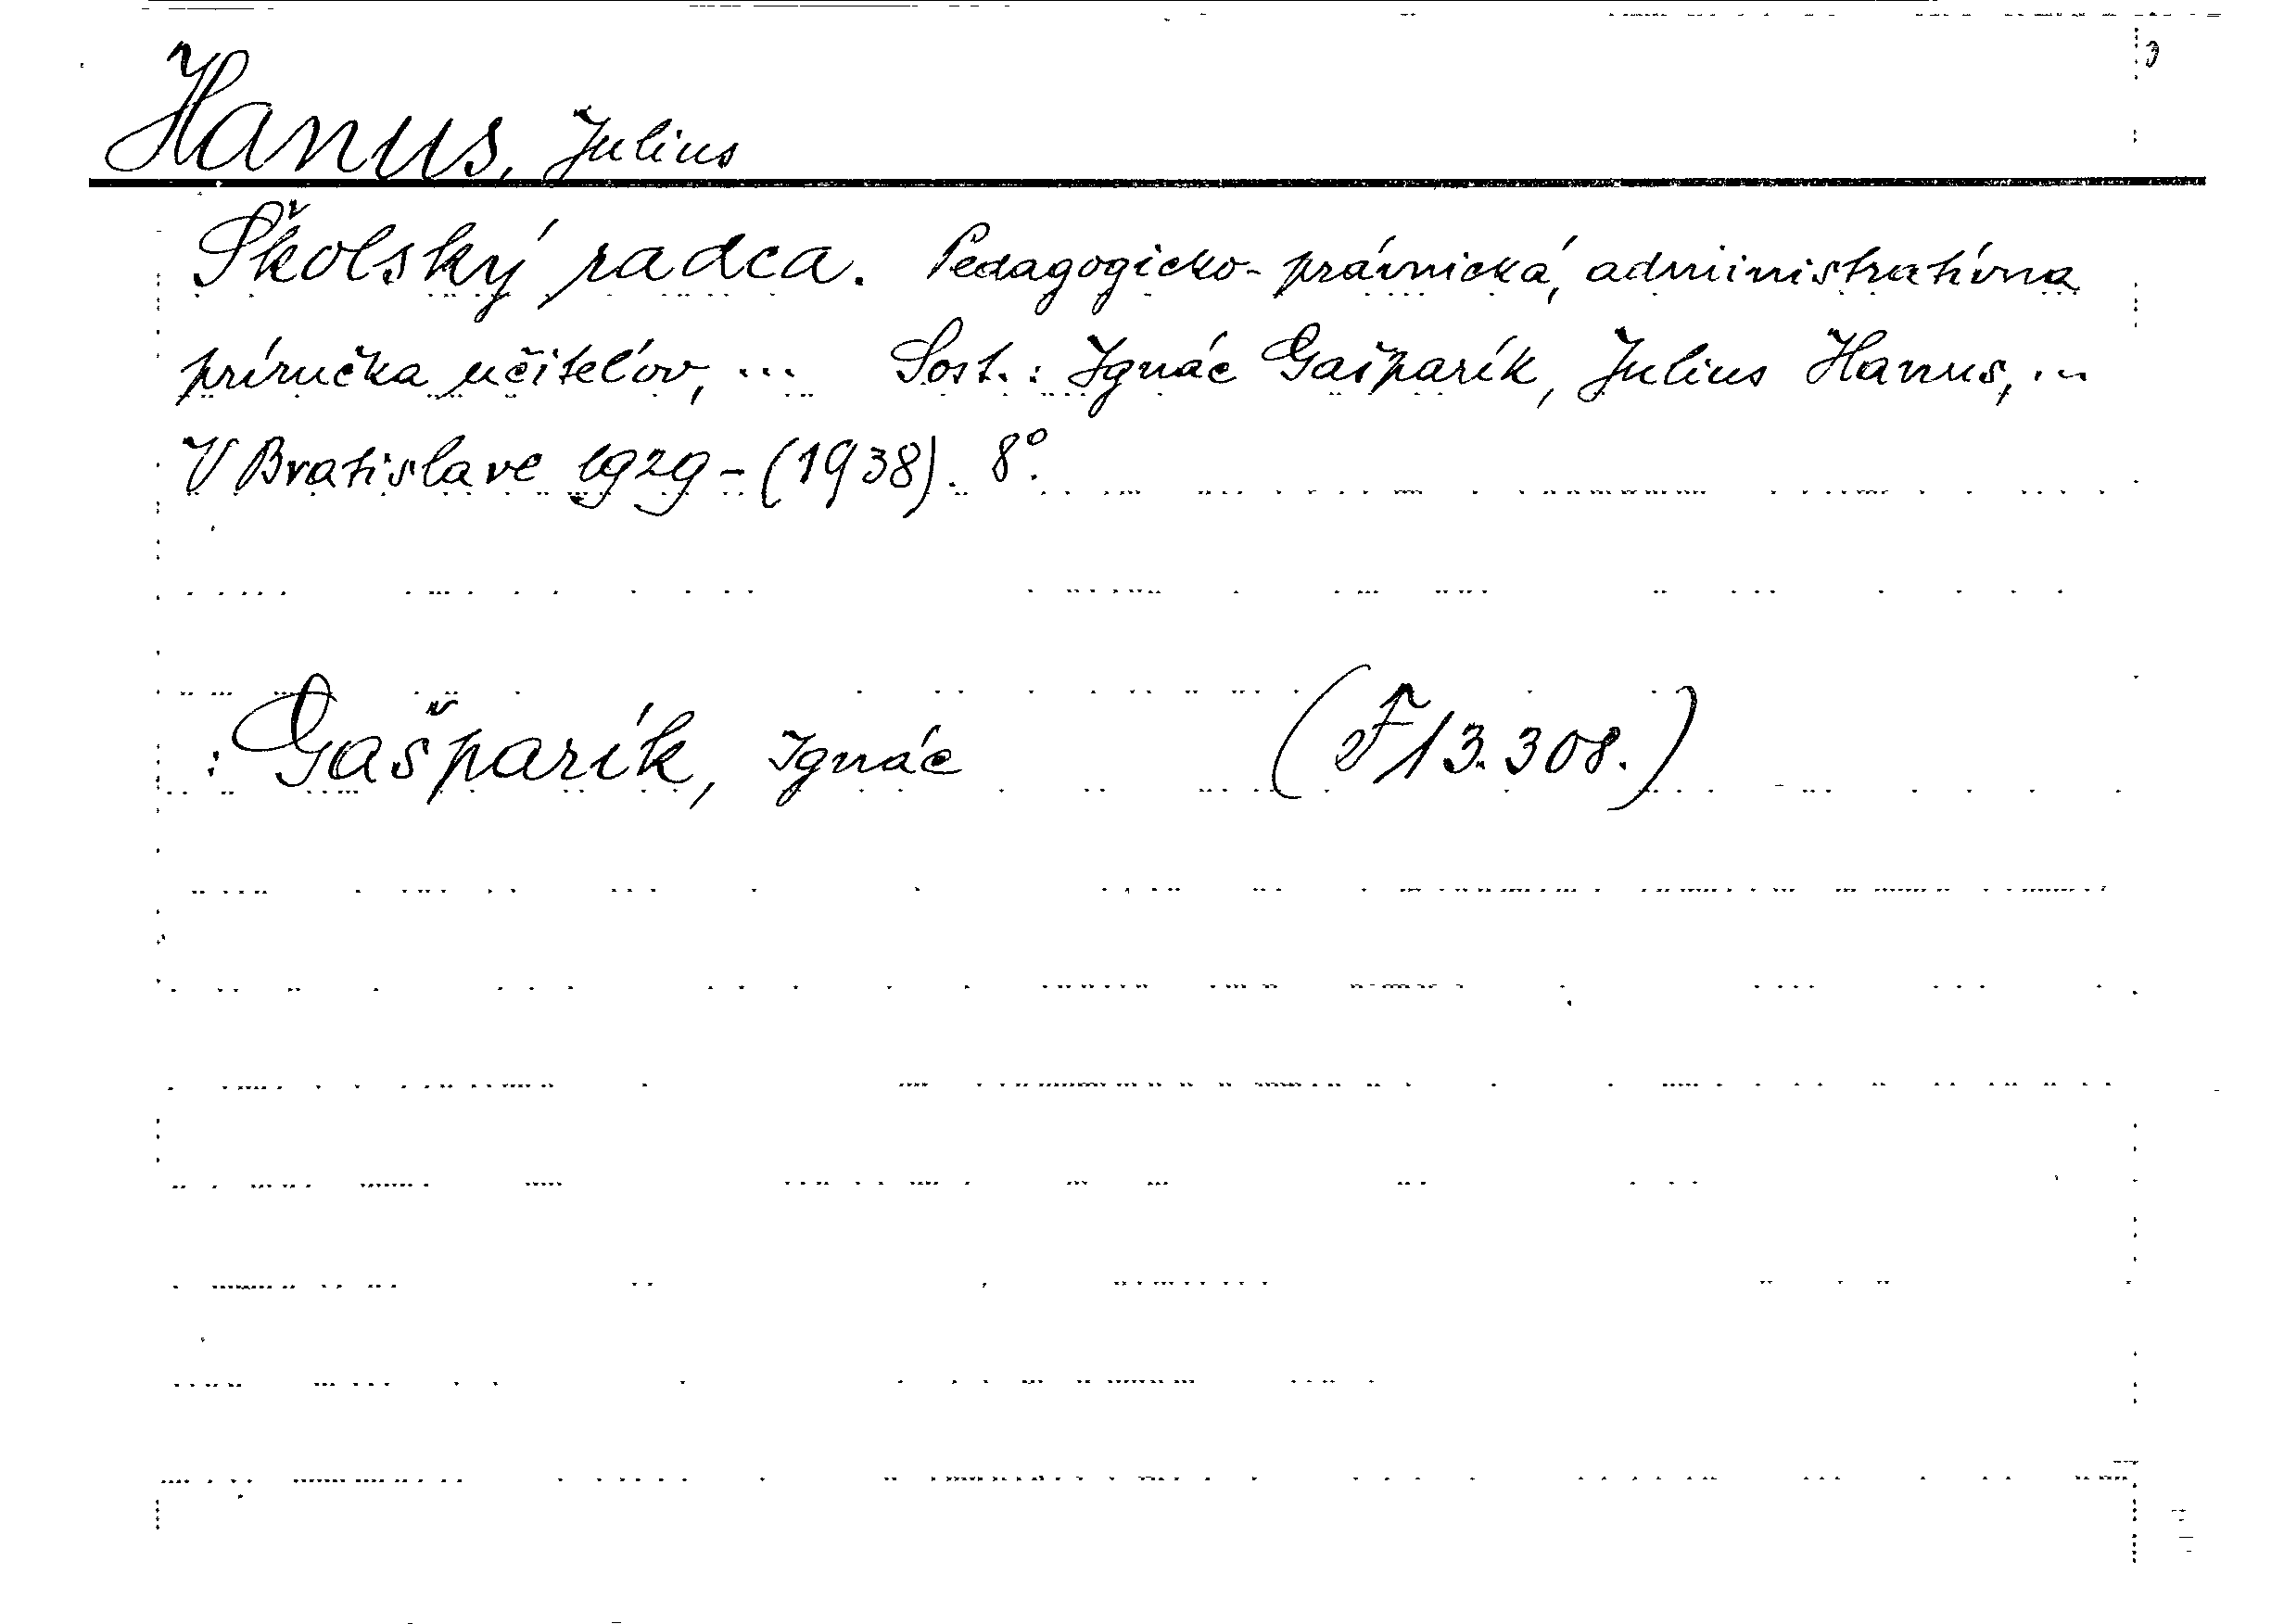 Hanus, Julius
Školský radca. Pedagogicko-právnická, administratívna
príručka učiteľov, ... Sost.: Ignác Gašparík, Julius Hanus, ...
V Bratislave 1929-(1938). 8°.
: Gašparík, Ignác (F 13.308.)